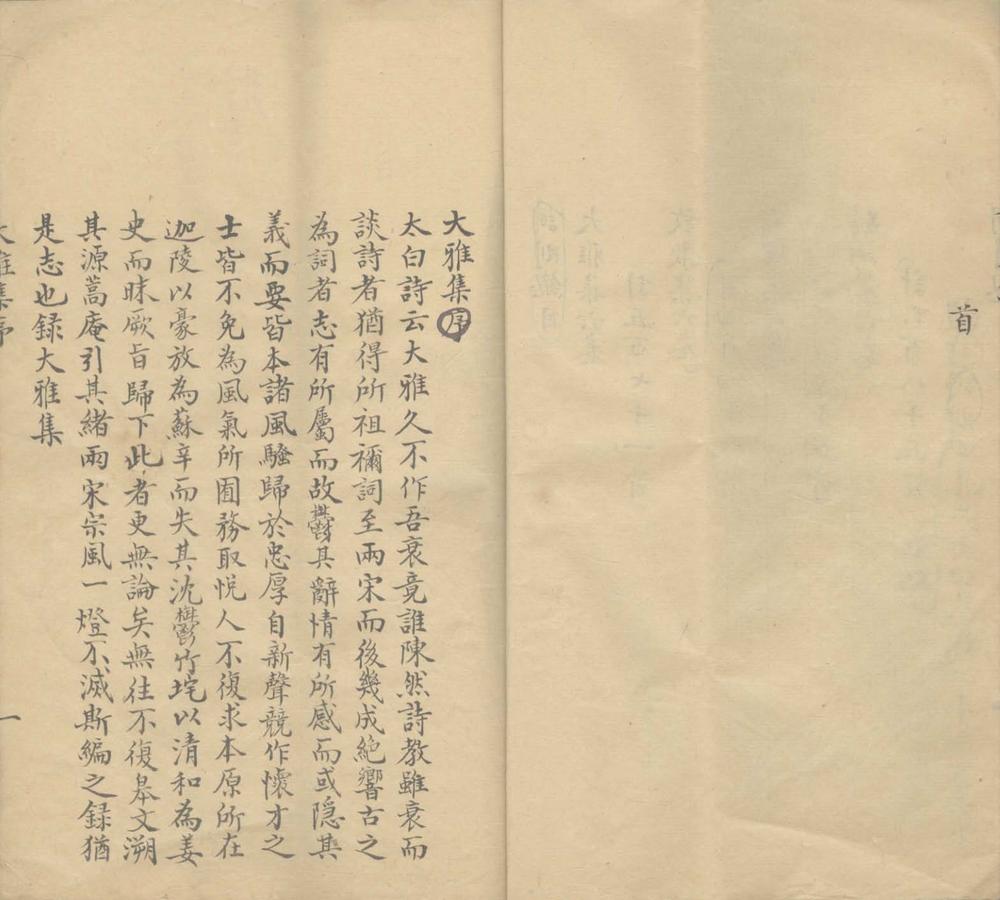 首
大雅集序
太白詩云大雅久不作吾衰竟誰陳然詩教雖衰而
談詩者猶得所祖禰詞至兩宋而後幾成絕響古之
為詞者志有所屬而故鬱其辭情有所感而或隱其
義而要皆本諸風騷歸於忠厚自新聲競作懷才之
士皆不免為風氣所囿務取悅人不復求本原所在
迦陵以豪放為蘇辛而失其沈鬱竹垞以清和為姜
史而昧厥旨歸下此者更無論矣無往不復皋文溯
其源蒿庵引其緒兩宋宗風一燈不滅斯編之錄猶
是志也錄大雅集
大雅集序
一